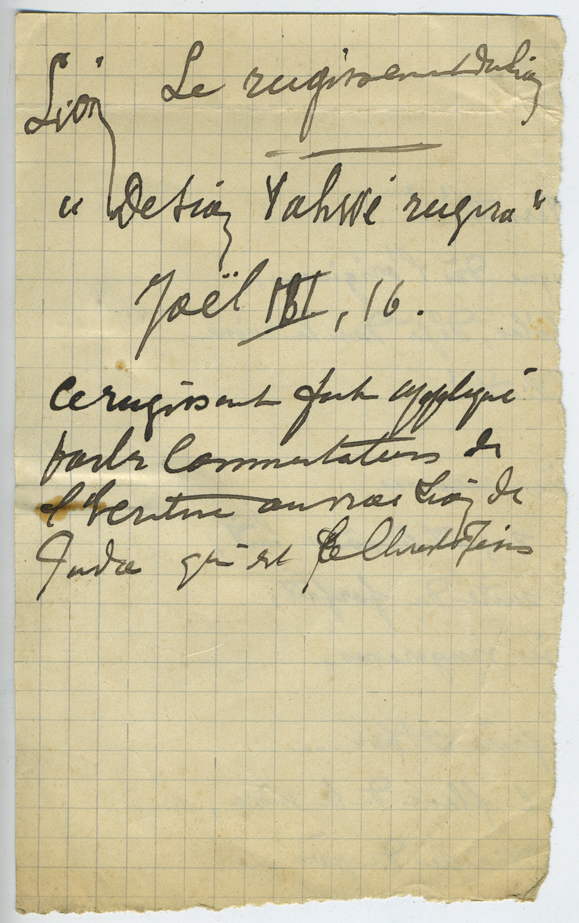 Lion Le rugissement du Lion
" De Sion Yahvé rugira "
Joël III, 16.
Ce rugissement fut appliqué
par les Commentateurs de
l'Ecriture au vrai Lion de
Juda qui est le Christ Jésus